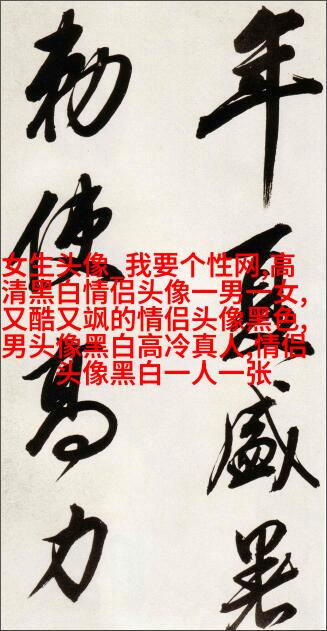 年夏盛暑
勅使高力
女生头像_我要个性网,高
清黑白情侣头像一男一女,
又酷又飒的情侣头像黑色,
男头像黑白高冷真人,情侣
头像黑白一人一张